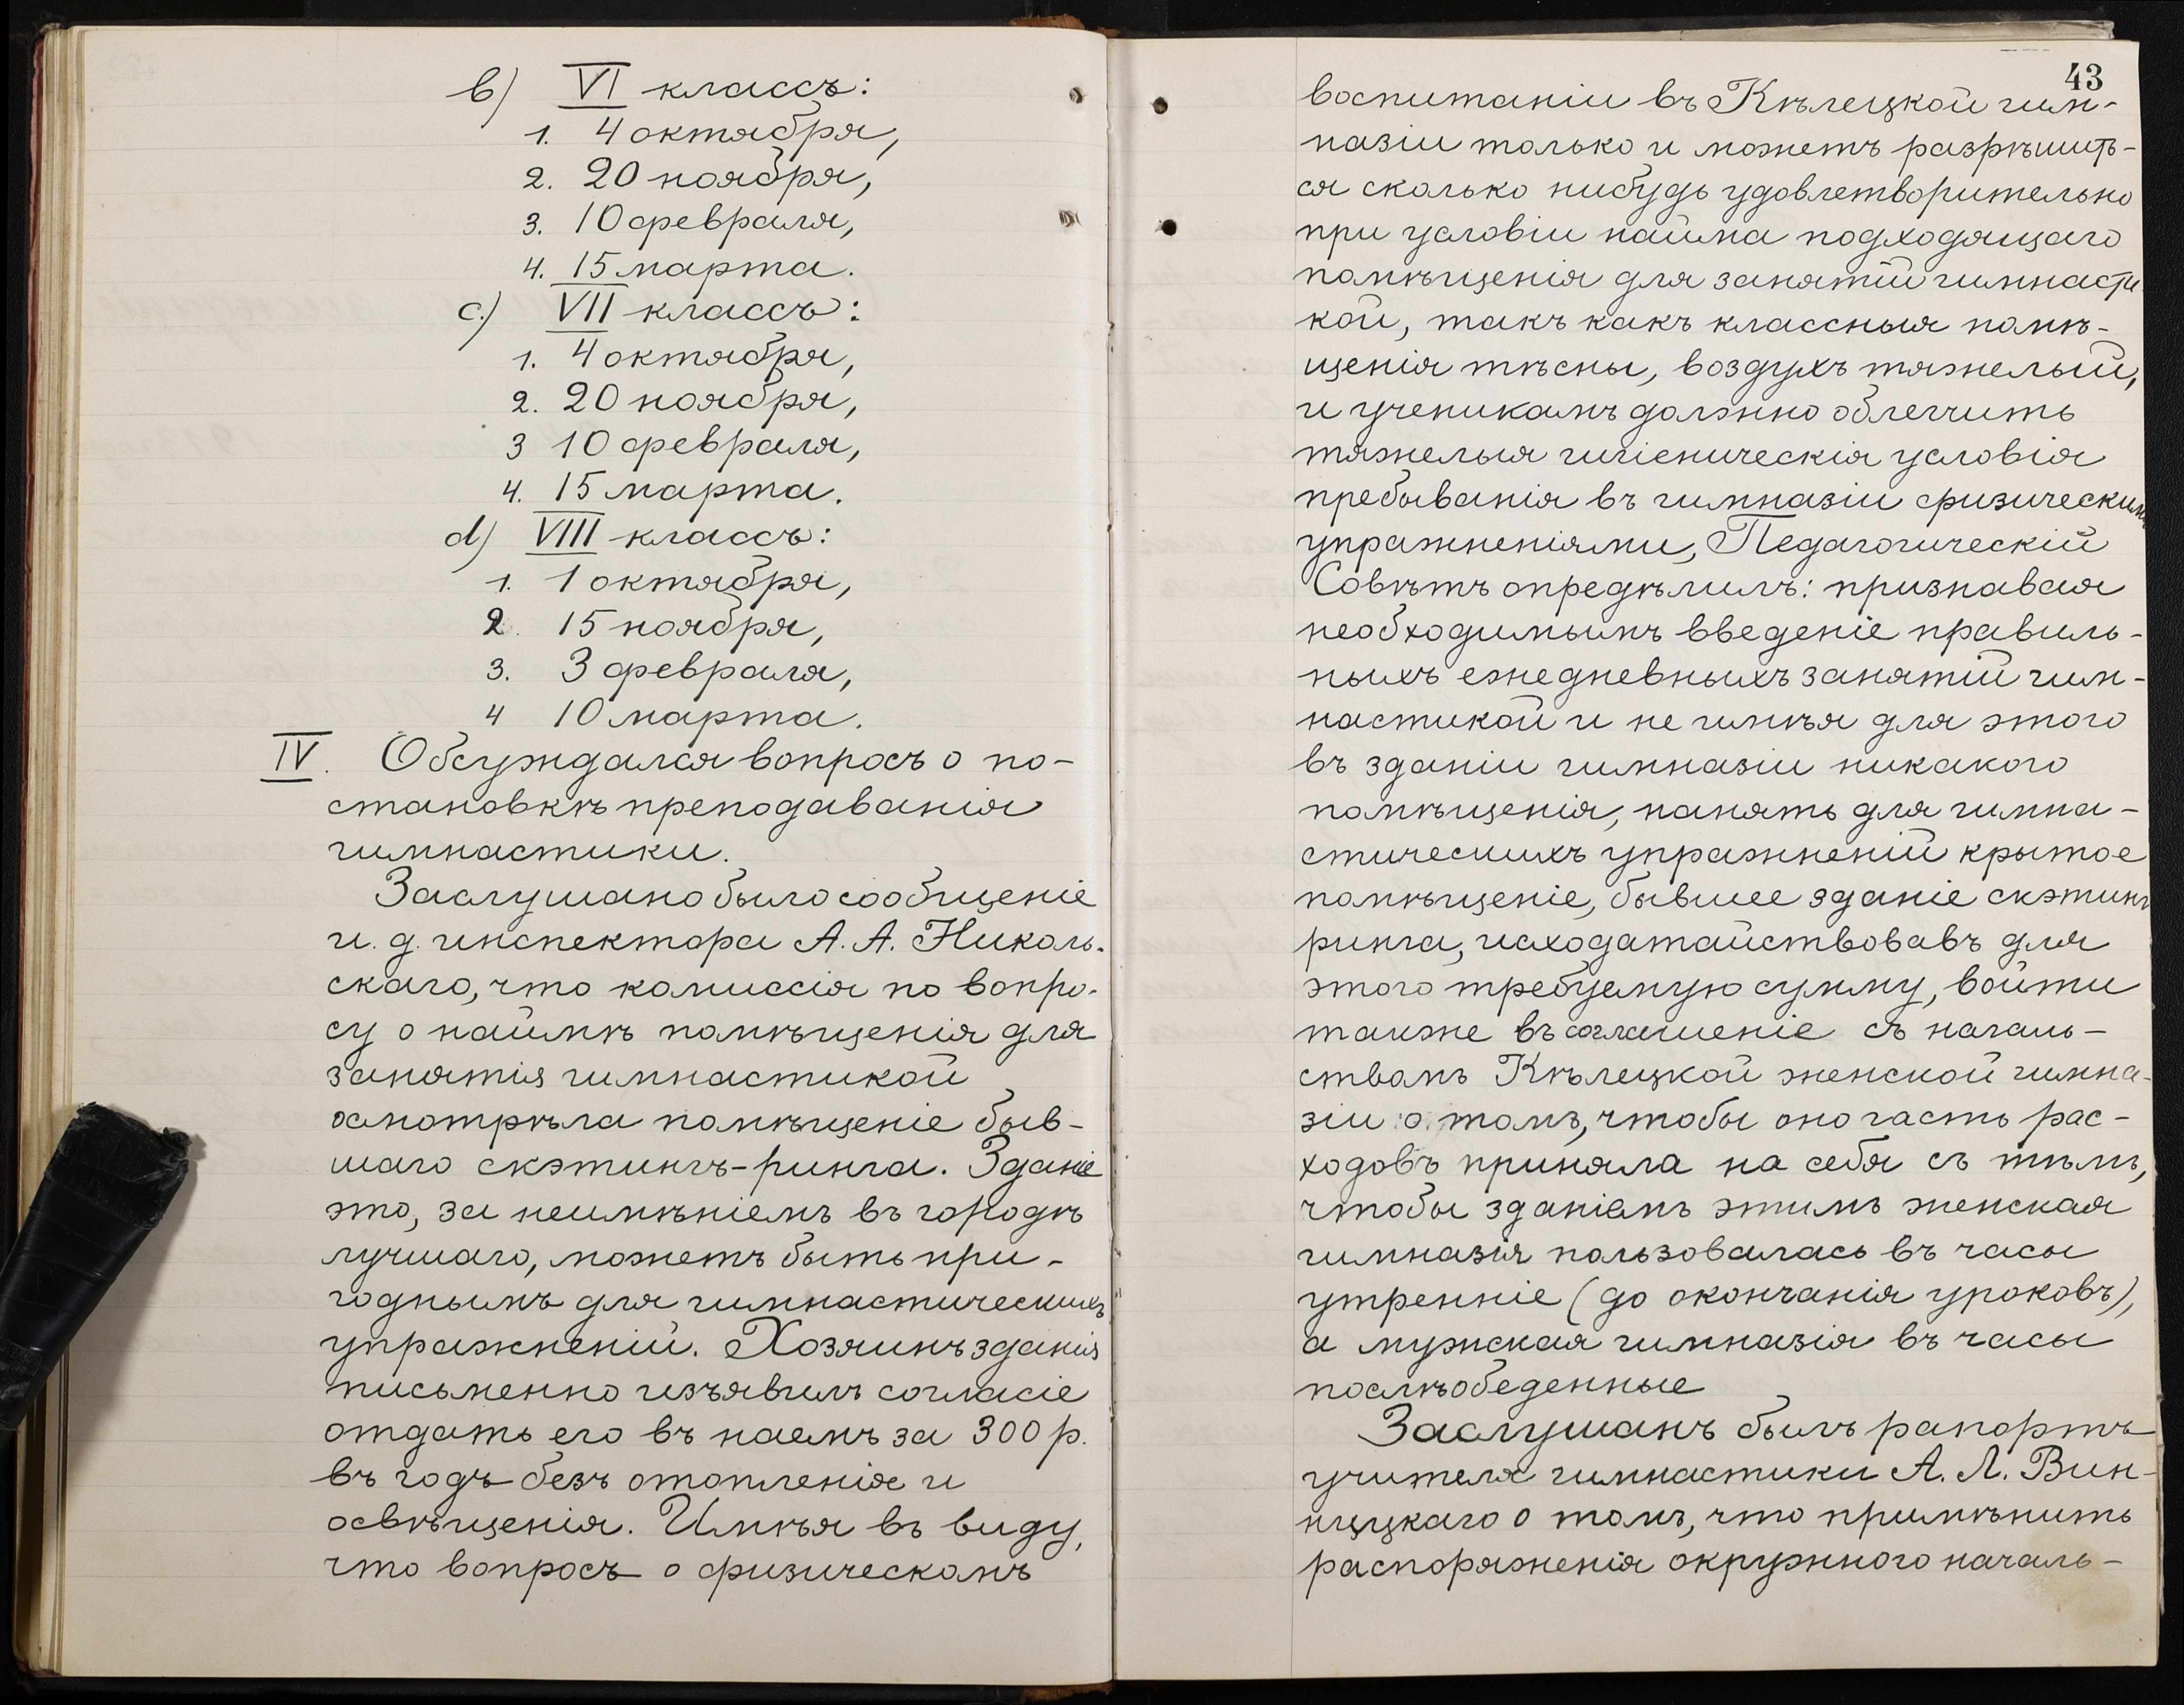 b) VI классъ:
1. 4 октября,
2. 20 ноября,
3. 10 февраля,
4. 15 марта.
c.) VII классъ:
1. 4 октября,
2. 20 ноября,
3 10 февраля,
4. 15 марта.
d) VIII классъ:
1. 1 октября,
2. 15 ноября,
3. 3 февраля,
4 10 марта.
IV. Обсуждался вопросъ о по-
становкѣ преподаванія
гимнастики.
Заслушано было сообщеніе
и. д. инспектора А. А. Николь-
скаго, что комиссія по вопро-
су о наймѣ помѣщенія для
занятія гимнастикой
осмотрѣла помѣщеніе быв-
шаго скэтингъ-ринга. Зданіе
это, за неимѣніемъ въ городѣ
лучшаго, можетъ быть при-
годнымъ для гимнастическихъ
упражненій. Хозяинъ зданія
письменно изъявилъ согласіе
отдать его въ наемъ за 300 р.
въ годъ безъ отопленія и
освѣщенія. Имѣя въ виду,
что вопросъ о физическомъ
43
воспитаніи въ Кѣлецкой гим-
назіи только и можетъ разрѣшить-
ся сколько нибудь удовлетворительно
при условіи найма подходящаго
помѣщенія для занятій гимнасти
кой, такъ какъ классныя помѣ-
щенія тѣсны, воздухъ тяжелый,
и ученикамъ должно облегчить
тяжелыя гигіеническія условія
пребыванія въ гимназіи физическими
упражненіями, Педагогическій
Совѣтъ опредѣлилъ: признавая
необходимымъ введеніе правиль-
ныхъ ежедневныхъ занятій гим-
настикой и не имѣя для этого
въ зданіи гимназіи никакого
помѣщенія, нанять для гимна-
стическихъ упражненій крытое
помѣщеніе, бывшее зданіе скэтинг
ринга, исходатайствовавъ для
этого требуемую сумму, войти
также въ соглашеніе съ началь-
ствомъ Кѣлецкой женской гимна-
зіи о томъ, чтобы оно часть рас-
ходовъ приняла на себя съ тѣмъ,
чтобы зданіемъ этимъ женская
гимназія пользовалась въ часы
утренніе (до окончанія уроковъ),
а мужская гимназія въ часы
послѣобеденные
Заслушанъ былъ рапортъ
учителя гимнастики А. Л. Вин-
ницкаго о томъ, что примѣнить
распоряженія окружного началь-